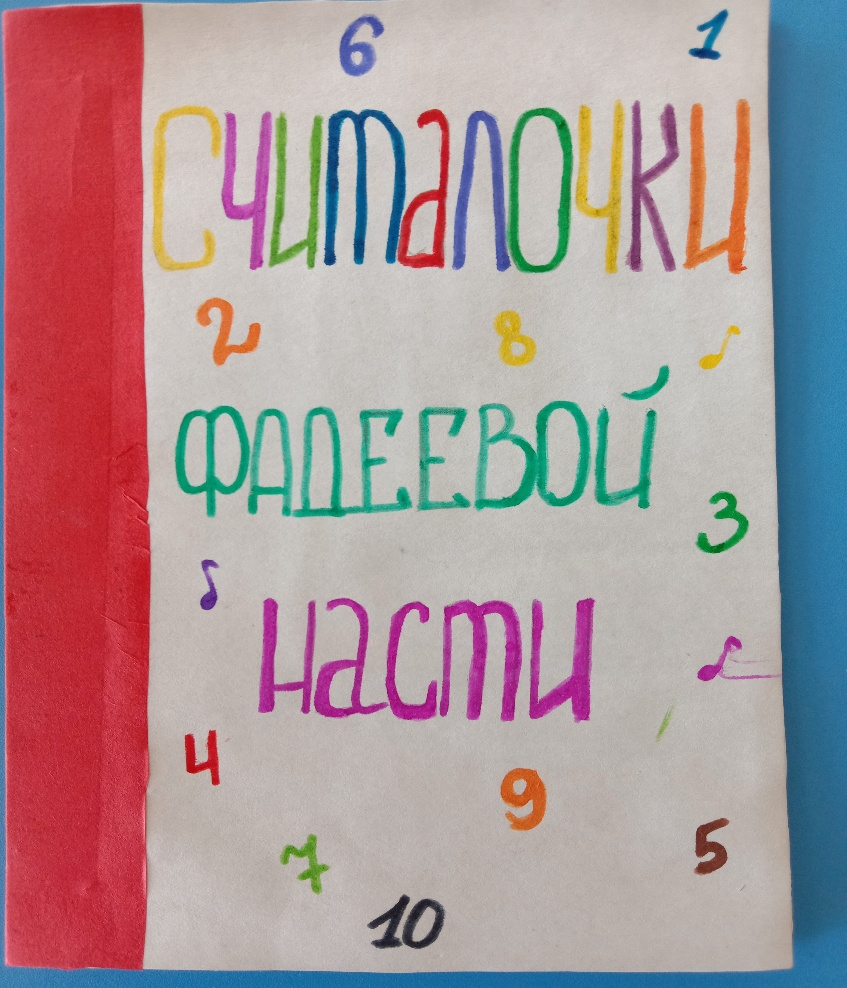 6 1
Считалочки
2 8
ФАДЕЕВОЙ
3
Насти
4 9
7 5
10